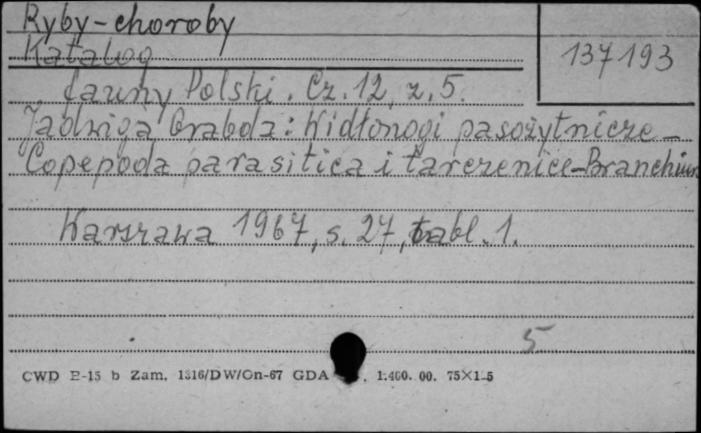 Ryby-choroby
137193
Katalog
fauny Polski. Cz. 12, z. 5.
Jadwiga Grabda: Widłonogi pasożytnicze -
Copepoda parasitica i tarczenice - Branchiura
Warszawa 1967, s. 27, tabl. 1.
5
CWD E-15 b Zam. 1316/DW/Gn-67 GDA 1:400.00. 75X1